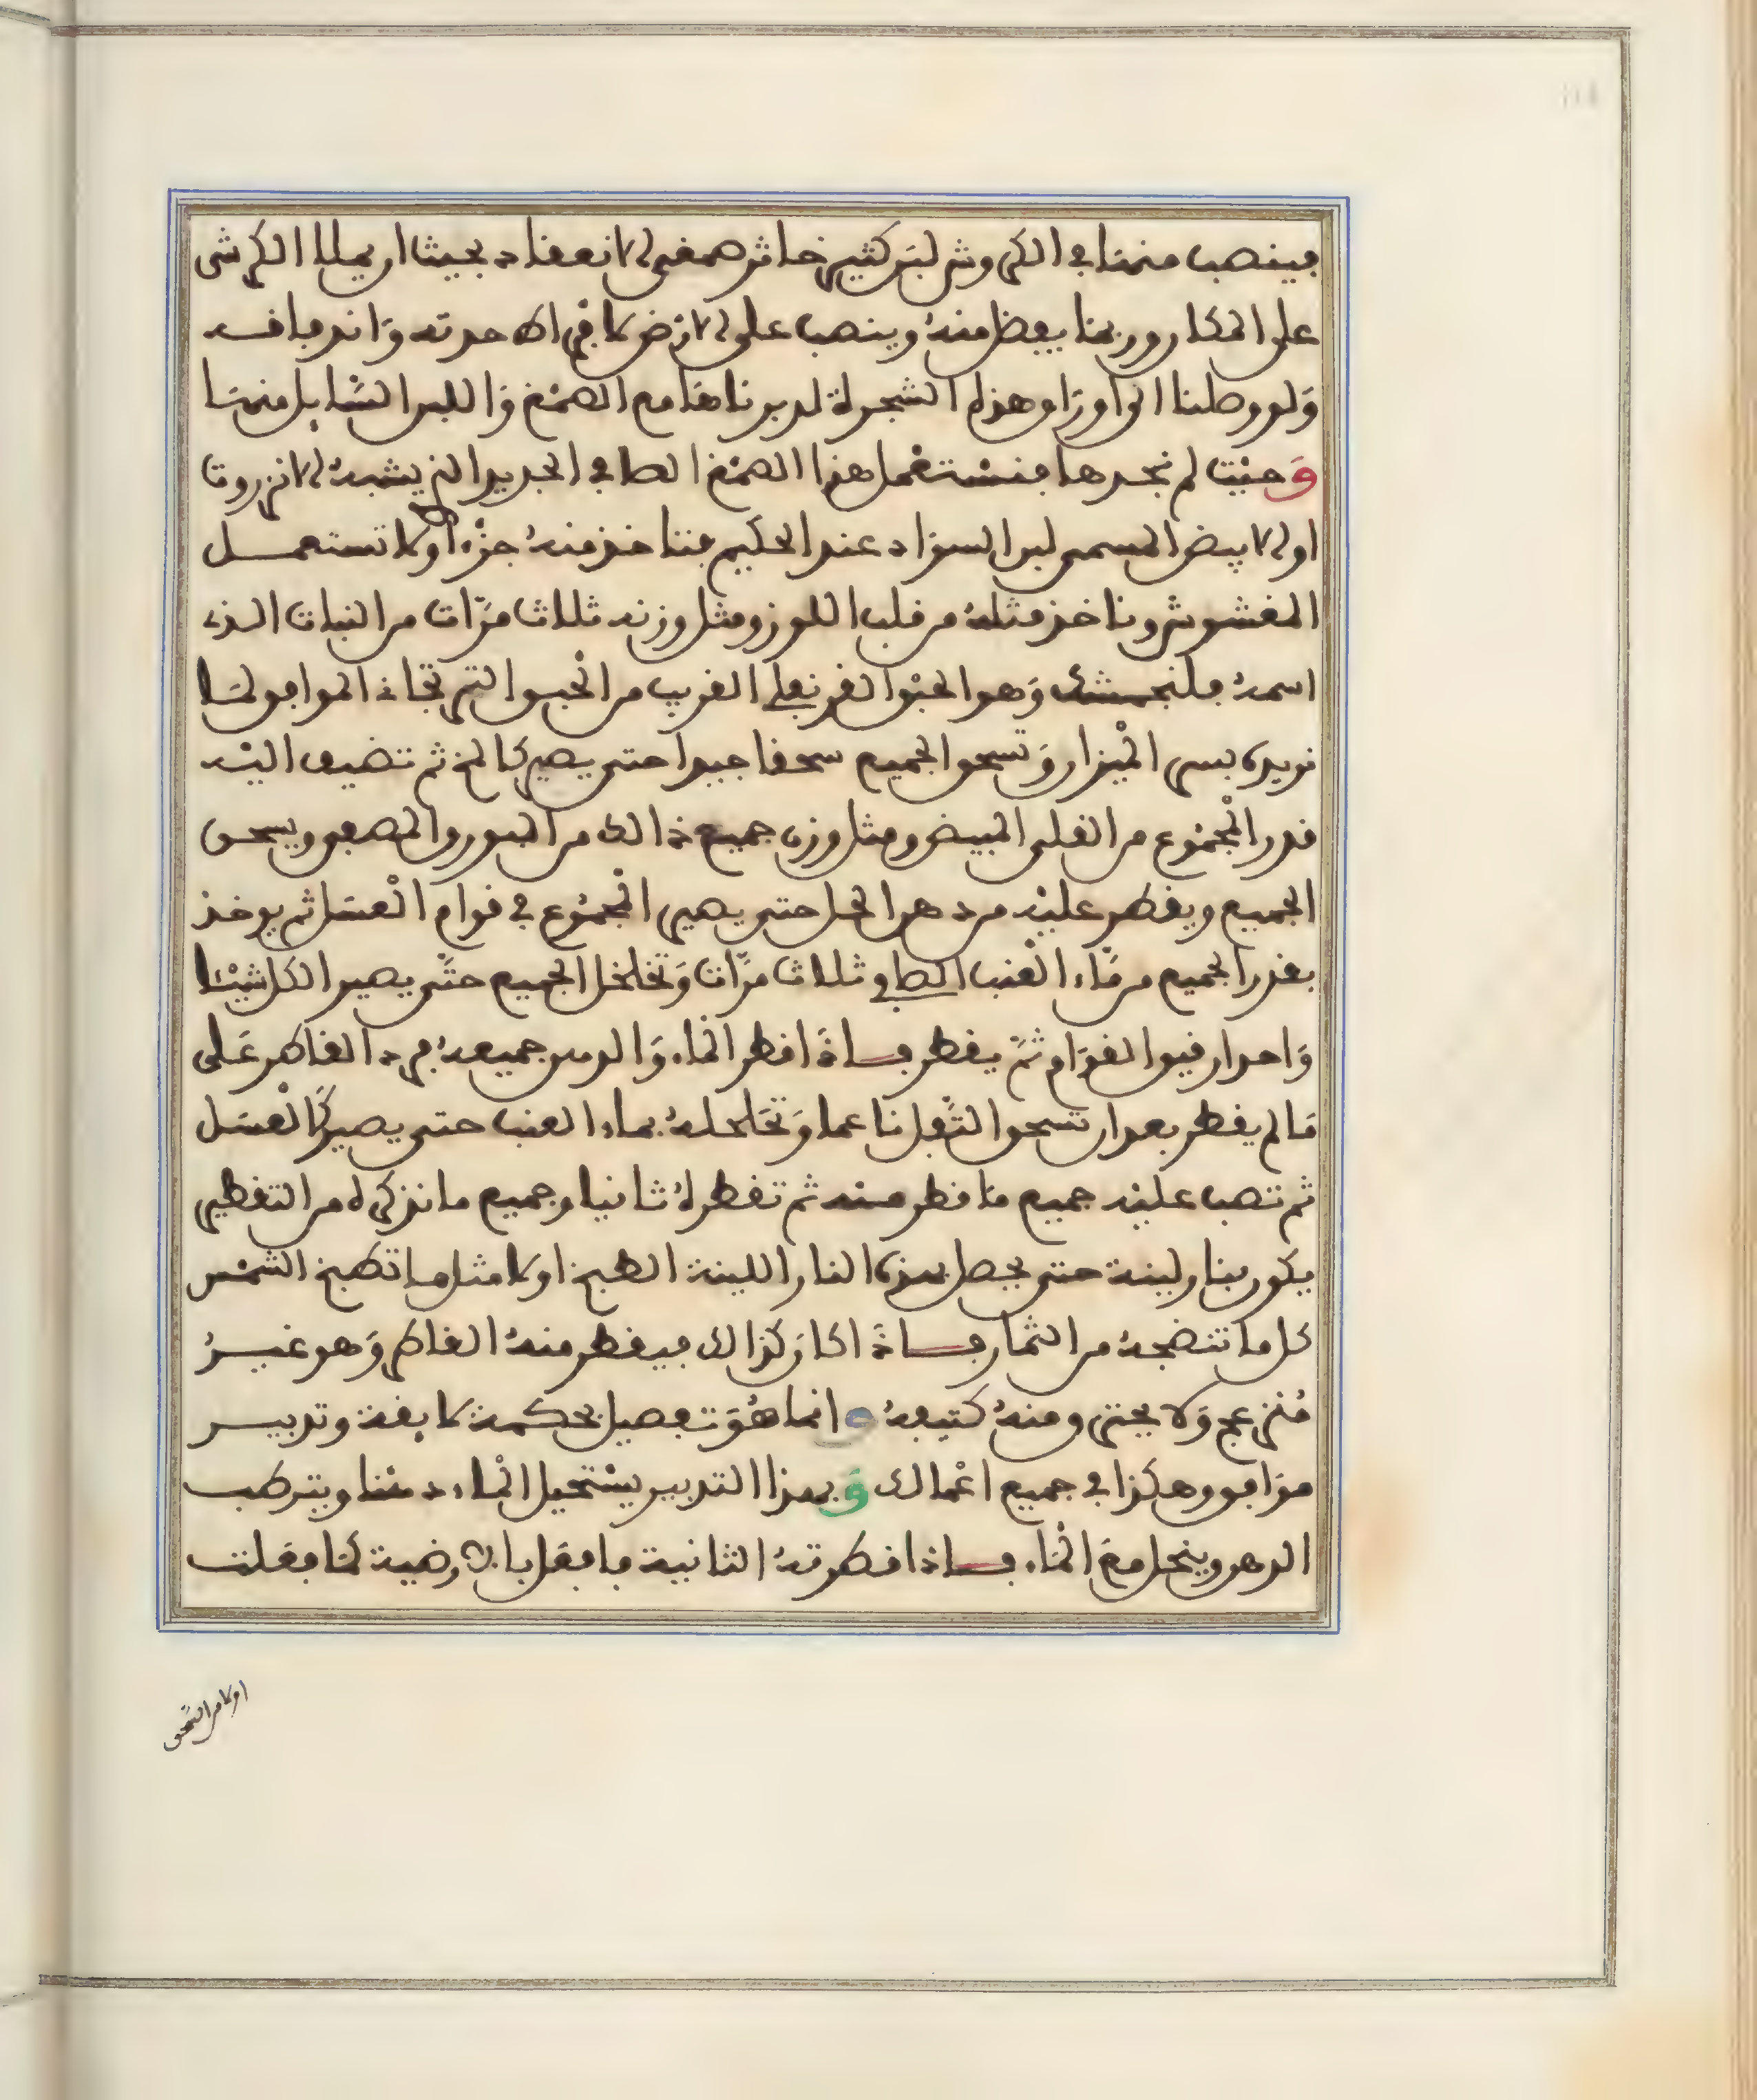 فينصب منها في الكروش لبن كثير خاثر صمغي الانعقاد بحيث ان يملا الكرش
على المكان وربما يفيض منه وينصب على الارض كما في اكـ حدته وانه باقـ
ولو وصلنا الى اوراق هذه الشجرة لدبرناها مع الصمغ واللبن السايل منها
وحيث لم نجدها فنستعمل هذا الصمغ الصافي الجديد الذي يشبه الانزروت
او الابيض المسمى لبن السودان عند الحكيم فناخذ منه جزءا ولا تستعمل
المغشوش وناخذ مثله من قلب اللوز ومثل وزنه ثلاث مرات من النبات الذي
اسمه فلنجمشك وهو الحبق القرنفلي القريب من الحبق التجاد الموافق لما
نريده بسي الميزان وتسحق الجميع سحقا جيدا حتى يصير كالمخ ثم تضيف اليه
قدر المجموع من القلي المبيض ومثل وزن جميع ذالك من البورق المصفى ويسحق
الجميع ويقطر عليه من دهن الخل حتى يصير المجموع في قوام العسل ثم يوخذ
بقدر الجميع من ماء العنب الصافي ثلاث مرات وتخلخل الجميع حتى يصير الكل شيئا
واحدا رقيق القوام ثم يقطر فاذا قطر الماء والدهن جميعه فيرد القاطر على
ما لم يقطر بعد ان تسحق الثفل ناعما وتخلخله بماء العنب حتى يصير كالعسل
ثم تصب عليه جميع ما قطر منه ثم تقطره ثانيا وجميع ما نذكره من التقطير
يكون بنار لينة حتى يحصل بهذه النار اللينة الطبخ اولا مثل ما تطبخ الشمس
كل ما تنضجه من الثمار فاذا كان كذالك فيقطر منه القاطر وهو غير
منزعج ولا يحترق ومنه كثيفه انما هو تفصيل بحكمة لايقة وتدبير
موافق وهكذا في جميع اعمالك وبهذا التدبير يستحيل الماء دهنا ويترطب
الدهن وينحل مع الماء فاذا قطرته الثانية فافعل بالارضية كما فعلت
اولا من السحق